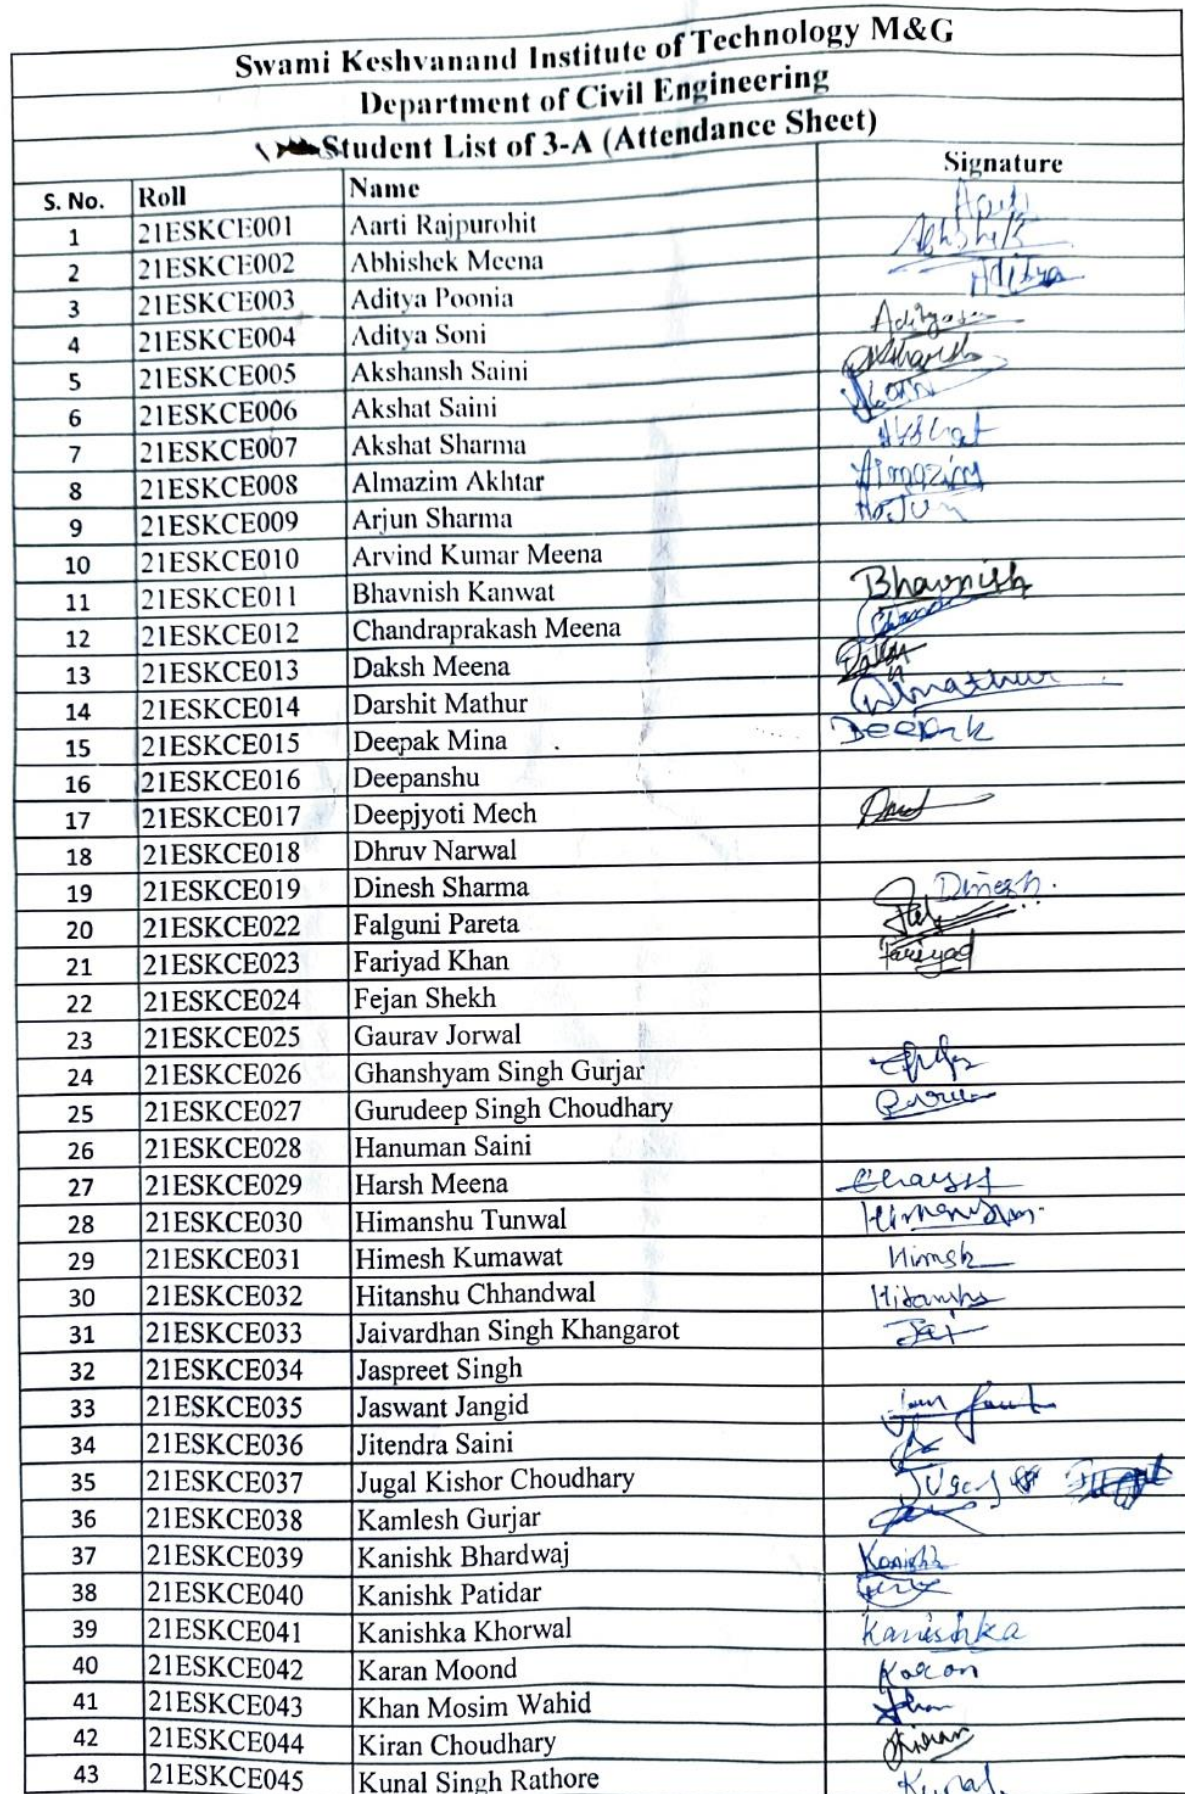 Swami Keshvanand Institute of Technology M&G
Department of Civil Engineering
Student List of 3-A (Attendance Sheet)
S. No. Roll Name Signature
1 21ESKCE001 Aarti Rajpurohit
2 21ESKCE002 Abhishek Meena Abhishek
3 21ESKCE003 Aditya Poonia Aditya
4 21ESKCE004 Aditya Soni
5 21ESKCE005 Akshansh Saini
6 21ESKCE006 Akshat Saini
7 21ESKCE007 Akshat Sharma Akshat
8 21ESKCE008 Almazim Akhtar Almazim
9 21ESKCE009 Arjun Sharma Arjun
10 21ESKCE010 Arvind Kumar Meena
11 21ESKCE011 Bhavnish Kanwat Bhavnish
12 21ESKCE012 Chandraprakash Meena
13 21ESKCE013 Daksh Meena
14 21ESKCE014 Darshit Mathur DMathur
15 21ESKCE015 Deepak Mina Deepak
16 21ESKCE016 Deepanshu
17 21ESKCE017 Deepjyoti Mech
18 21ESKCE018 Dhruv Narwal
19 21ESKCE019 Dinesh Sharma Dinesh.
20 21ESKCE022 Falguni Pareta
21 21ESKCE023 Fariyad Khan Fariyad
22 21ESKCE024 Fejan Shekh
23 21ESKCE025 Gaurav Jorwal
24 21ESKCE026 Ghanshyam Singh Gurjar
25 21ESKCE027 Gurudeep Singh Choudhary
26 21ESKCE028 Hanuman Saini
27 21ESKCE029 Harsh Meena
28 21ESKCE030 Himanshu Tunwal
29 21ESKCE031 Himesh Kumawat Himesh
30 21ESKCE032 Hitanshu Chhandwal Hitanshu
31 21ESKCE033 Jaivardhan Singh Khangarot Jai
32 21ESKCE034 Jaspreet Singh
33 21ESKCE035 Jaswant Jangid
34 21ESKCE036 Jitendra Saini
35 21ESKCE037 Jugal Kishor Choudhary Jugal
36 21ESKCE038 Kamlesh Gurjar
37 21ESKCE039 Kanishk Bhardwaj Kanishk
38 21ESKCE040 Kanishk Patidar
39 21ESKCE041 Kanishka Khorwal Kanishka
40 21ESKCE042 Karan Moond Karan
41 21ESKCE043 Khan Mosim Wahid
42 21ESKCE044 Kiran Choudhary Kiran
43 21ESKCE045 Kunal Singh Rathore Kunal